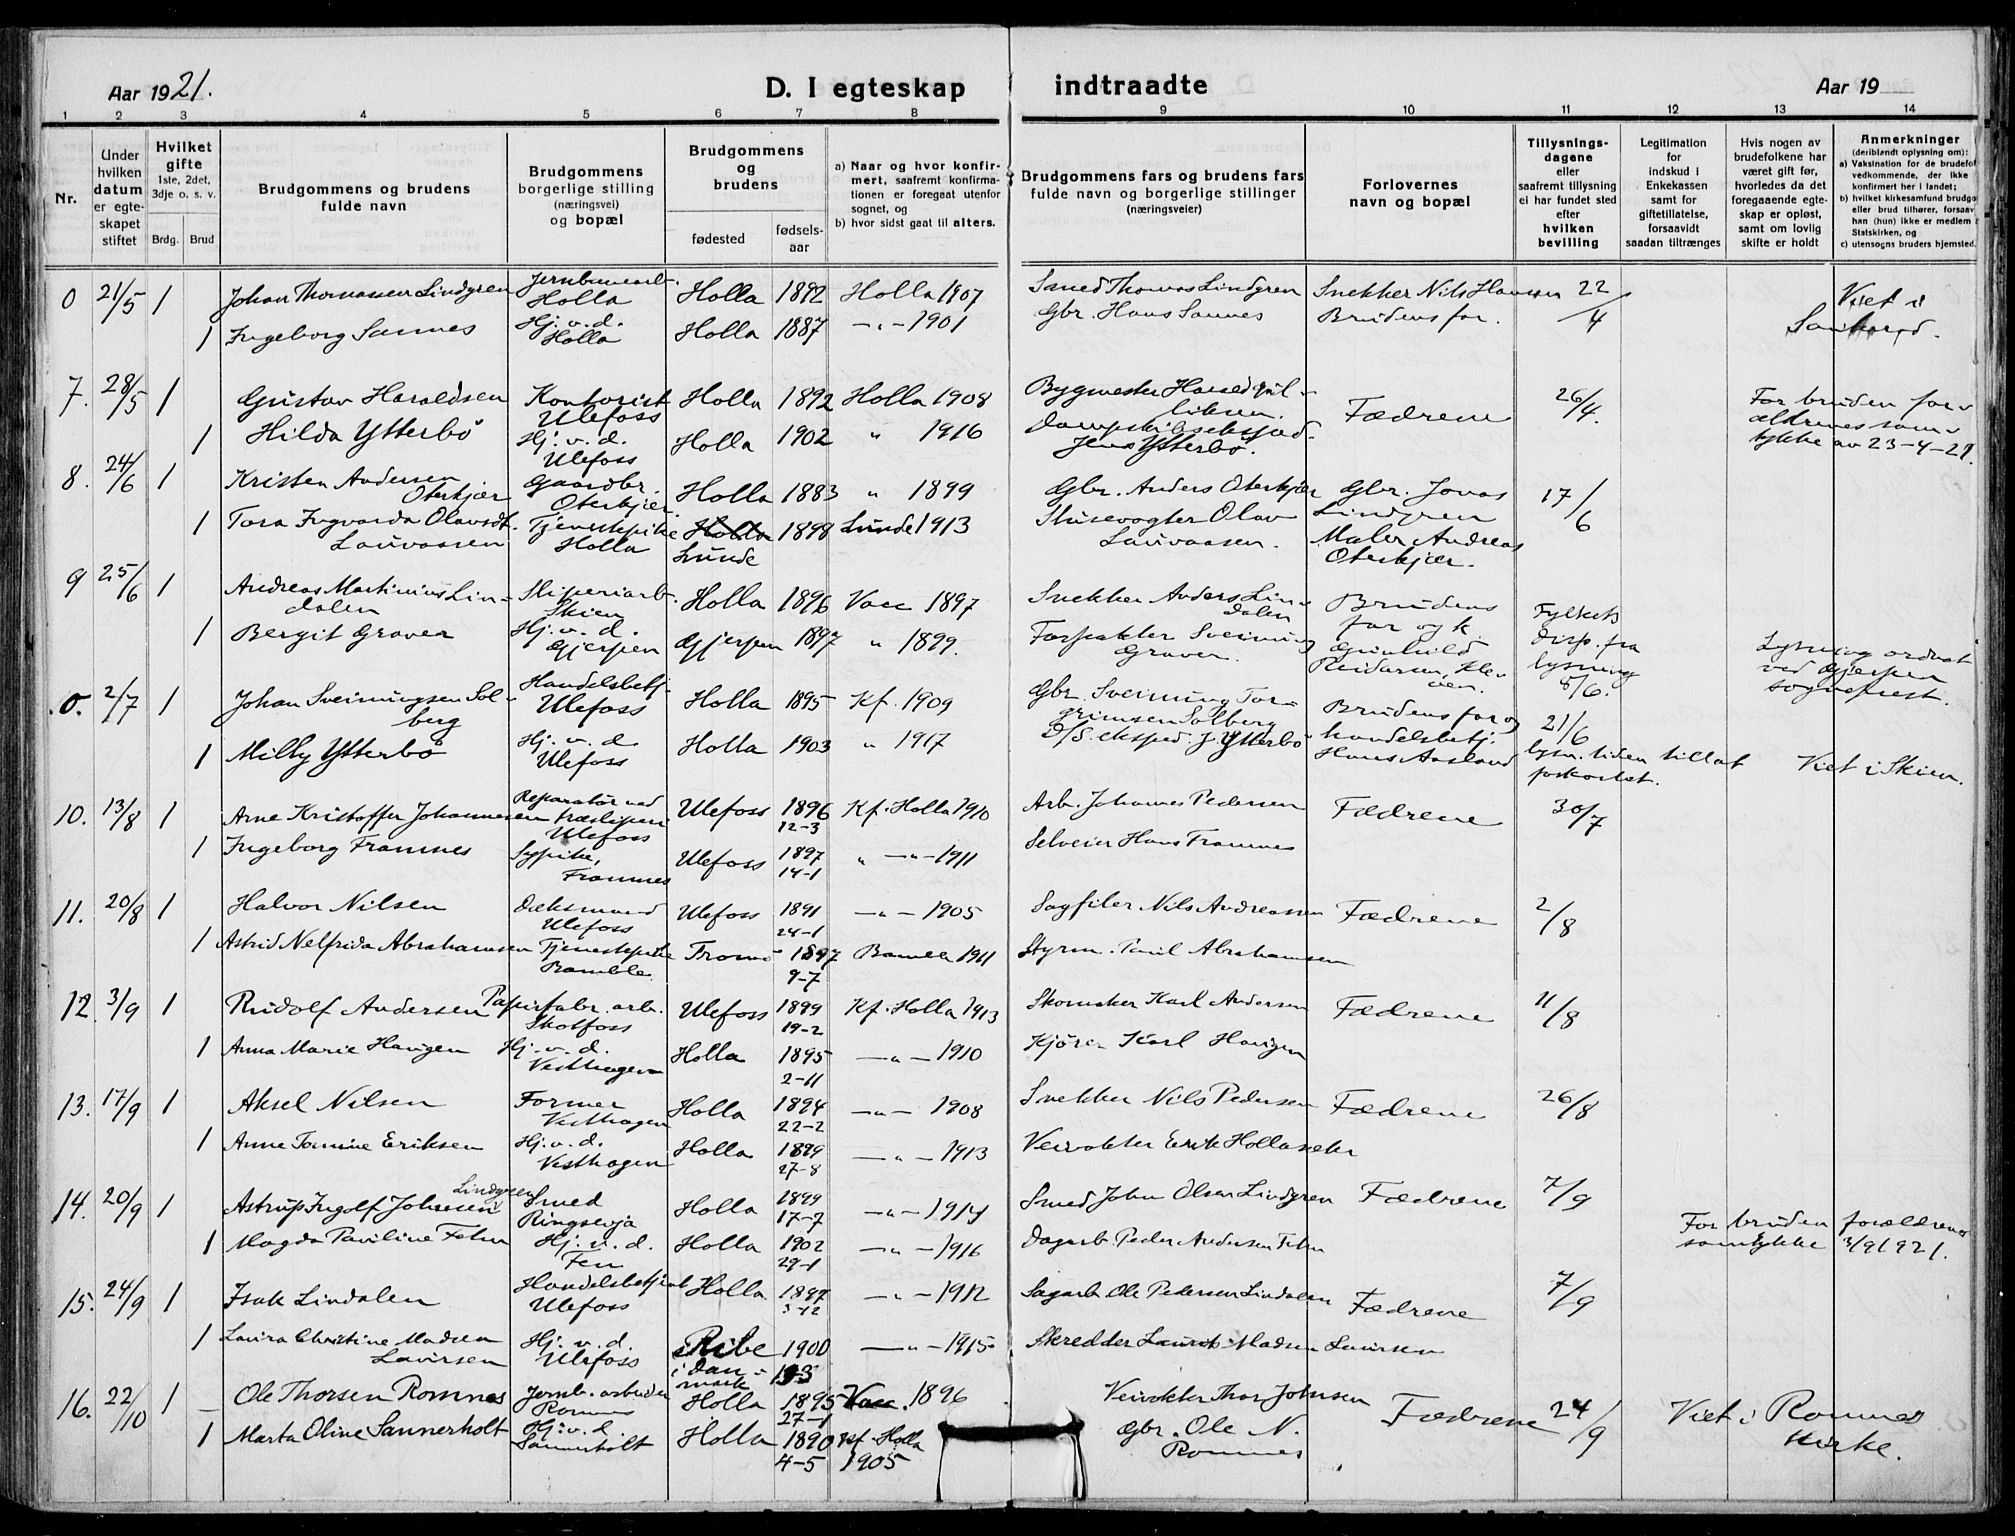 Aar 1921.
D. I egteskap indtraadte
Aar 19
1 2 3 4 5 6 7 8 9 10 11 12 13 14
Nr.
Under hvilken datum er egteskapet stiftet
Hvilket gifte
1ste, 2det, 3dje o. s. v.
Brdg. Brud
Brudgommens og brudens fulde navn
Brudgommens borgerlige stilling (næringsvei) og bopæl
Brudgommens og brudens
fødested
fødsels-aar
a) Naar og hvor konfirmert, saafremt konfirmationen er foregaat utenfor sognet, og
b) hvor sidst gaat til alters.
Brudgommens fars og brudens fars fulde navn og borgerlige stillinger (næringsveier)
Forlovernes navn og bopæl
Tillysnings-dagene eller saafremt tillysning ei har fundet sted efter hvilken bevilling
Legitimation for indskud i Enkekassen samt for giftetillatelse, forsaavidt saadan tiltrænges
Hvis nogen av brudefolkene har været gift før, hvorledes da det foregaaende egteskap er opløst, samt om lovlig skifte er holdt
Anmerkninger
(deriblandt oplysning om):
a) Vaksination for de brudefol
vedkommende, der ikke
konfirmert her i landet;
b) hvilket kirkesamfund brudgo
eller brud tilhører, forsaav
han (hun) ikke er medlem
Statskirken, og
c) utensogns bruders hjemsted.
0 21/5 1 Johan Thomassen Lindgren Jernbanearb. Holla Holla 1892 Holla 1907 Smed Thomas Lindgren Snekker Nils Hansen 22/4 Viet i
1 Ingeborg Sannes Hj. v. d. Holla Holla 1887 -„- 1901 Gbr. Hans Sannes Brudens far.
7. 28/5 1 Gustav Haraldsen Kontorist Ulefoss Holla 1892 Holla 1908 Bygmester Fædrene 26/4. For bruden for-
1 Hilda Ytterbö Hj. v. d. Ulefoss Holla 1902 „ 1916 Jens Ytterbö. ældrenes sam-
tykke av 23-4-21.
8. 24/6 1 Kristen Andersen Oterkjær Gaardbr. Oterkjær. Holla 1883 „ 1899 Gbr. Anders Oterkjær Gbr. Jonas Lindgren 17/6
1 Tora Ingvarda Olavsdt. Lauvaasen Tjenestepike Holla Holla Lunde 1898 Lunde 1913 Slusevogter Olav Lauvaasen. Maler Andreas Oterkjær.
9 25/6 1 Andreas Martinius Lindalen Sliperiarb. Skien Holla 1896 Vacc 1897 Snekker Anders Lindalen Brudens far og k. Fylkets disp. fra
1 Bergit Graver Hj. v. d. Gjerpen Gjerpen 1897 „ 1899. Forpakter Sveinung Graver. Gunhild Reidarsen, lysning 8/6. Lysning ordnet ved Gjerpen sogneprest.
.0. 2/7 1 Johan Sveinungsen Solberg Handelsbetj. Ulefoss Holla 1895 Kf. 1909 Gbr. Sveinung Torgrimsen Solberg Brudens far og 21/6
1 Milly Ytterbö Hj. v. d. Ulefoss Holla 1903 „ 1917 D/S. eksped. J. Ytterbö handelsbetj. Hans Aasland lysn. tiden tillat forkortet. Viet i Skien.
10. 13/8 1 Arne Kristoffer Johannesen Reparatør ved træsliperi Ulefoss Ulefoss 1896 12-3 Kf. Holla 1910 Arb. Johannes Pedersen Fædrene 30/7
1 Ingeborg Framnes Sypike, Framnes Ulefoss 1897 14-1 „ -„- 1911 Selveier Hans Framnes
11. 20/8 1 Halvor Nilsen Dæksmand Ulefoss Ulefoss 1891 24-1 -„- 1905 Sagfiler Nils Andreassen Fædrene 2/8
1 Astrid Nelfrida Abrahamsen Tjenestepike Bamble Tromö 1897 9-7 Bamble 1911 Styrm. Paul Abrahamsen
12. 3/9 1 Rudolf Andersen Papirfabr. arb. Skotfoss Ulefoss 1899 19-2 Kf. Holla 1913 Skomaker Karl Andersen Fædrene 11/8
1 Anna Marie Haugen Hj. v. d. Vesthagen Holla 1895 2-11 -„- 1910 Kjører Karl Haugen
13. 17/9 1 Aksel Nilsen Former Vesthagen Holla 1894 22-2 -„- 1908 Snekker Nils Pedersen Fædrene 26/8
1 Anne Tomine Eriksen Hj. v. d. Vesthagen Holla 1899 27-8 -„- 1913 Veivokter Erik Hollasæter
14. 20/9 1 Astrup Ingolf Johnsen Lindgren Smed Ringsevja Holla 1899 17-7 -„- 1914 Smed John Olsen Lindgren Fædrene 7/9
1 Magda Pauline Fehn Hj. v. d. Fen Holla 1902 29-1 -„- 1916 Dagarb Peder Andersen Fehn For bruden forældrenes samtykke 3/9 1921.
15. 24/9 1 Isak Lindalen Handelsbetjent Ulefoss Holla 1897 3-12 -„- 1912 Sagarb. Ole Pedersen Lindalen Fædrene 7/9
1 Laura Christine Madsen Laursen Hj. v. d. Ulefoss Ribe i Danmark 1900 -„- 1915 Skredder Laurits Madsen Laursen
16. 22/10 1 Ole Thorsen Romnes Jernb. arbeider Romnes Holla 1895 27-1 Vacc. 1896 Veivokter Thor Johnsen Fædrene 24/9 Viet i Romnes Kirke.
1 Marta Oline Sannerholt Hj. v. d. Sannerholt Holla 1890 4-5 Kf. Holla 1905 Gbr. Ole N. Romnes